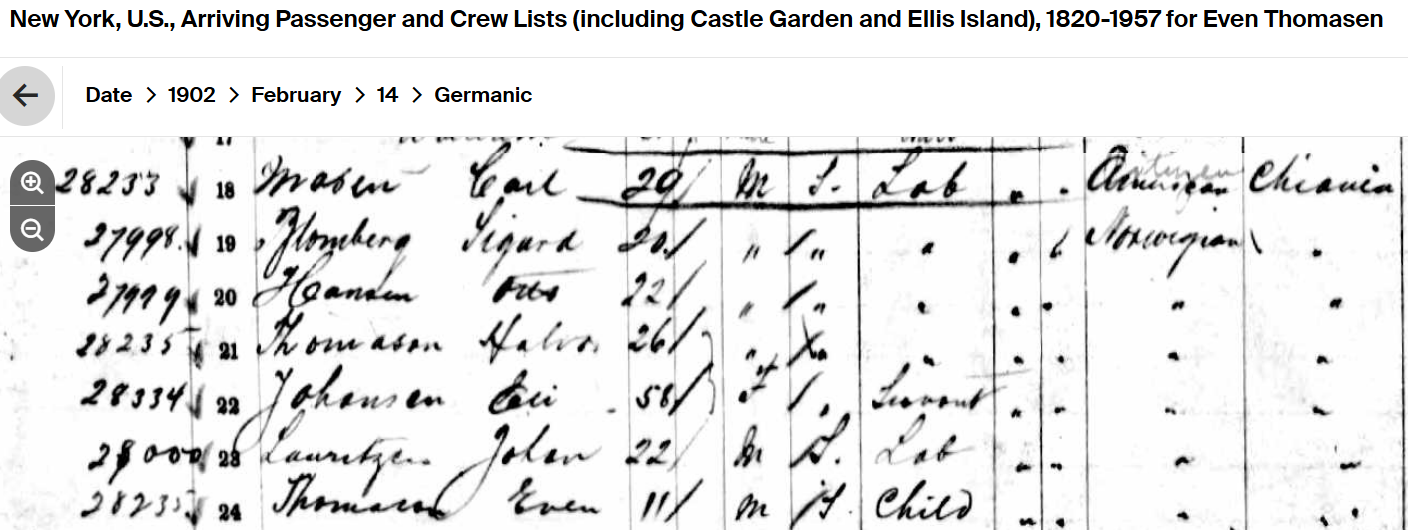 New York, U.S., Arriving Passenger and Crew Lists (including Castle Garden and Ellis Island), 1820-1957 for Even Thomasen
Date > 1902 > February > 14 > Germanic
17
28233 18 Carl 29/ M S. Lab " " American citizen
27998 19 Blomberg Sigurd 20/ " / " " " " Norwegian "
27999 20 Hansen Otto 22/ " / " " " " " "
28235 21 Thomason Halvor 26/ " " " " " " "
28334 22 Johansen 58/ F / " Servant " " " "
28000 23 Lauritzen Johan 22/ M S. Lab " " " "
28235 24 Thomason Even 11/ M S. Child " " " "